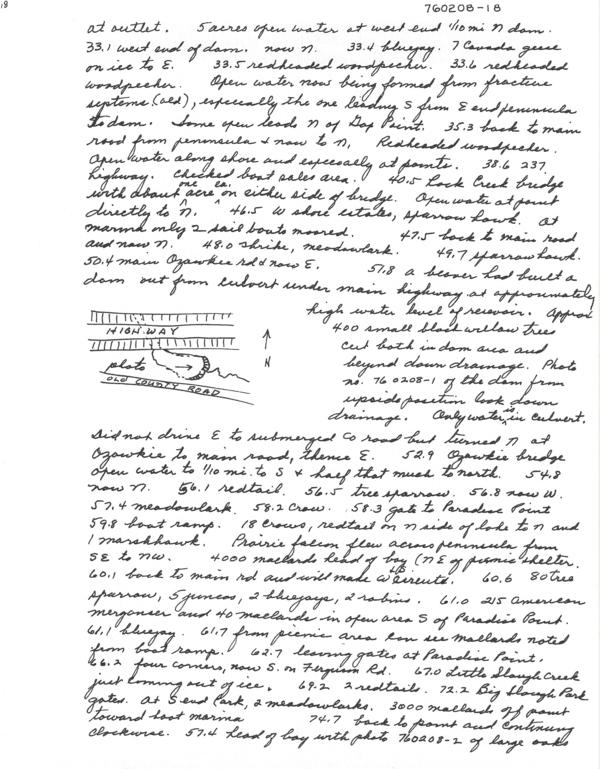 18
760208-18
at outlet. 5 acres open water at west end 1/10 mi N dam.
33.1 west end of dam. now N. 33.4 bluejay. 7 Canada geese
on ice to E. 33.5 redheaded woodpecker. 33.6 redheaded
woodpecker. Open water now being formed from fracture
systems (old), especially the one leading S from E end peninsula
to dam. Some open leads N of Gap Point. 35.3 back to main
road from peninsula & now to N. Redheaded woodpecker.
Open water along shore and especially at points. 38.6 237
highway. Checked boat sales area. 40.5 Rock Creek bridge
with about one acre ea. on either side of bridge. Open water at point
directly to N. 46.5 W shore estates, sparrow hawk. At
marina only 2 sail boats moored. 47.5 back to main road
and now N. 48.0 shrike, meadowlark. 49.7 sparrow hawk.
50.4 main Ozawkie rd & now E. 51.8 a beaver had built a
dam out from culvert under main highway at approximately
high water level of resevoir. Approx
400 small black willow trees
cut both in dam area and
beyond down drainage. Photo
no. 760208-1 of the dam from
upside position look down
drainage. Only water is in culvert.
HIGHWAY
photo
N
OLD COUNTY ROAD
Did not drive E to submerged Co road but turned N at
Ozawkie to main road, thence E. 52.9 Ozawkie bridge
open water to 1/10 mi. to S & half that much to north. 54.8
now N. 56.1 redtail. 56.5 tree sparrow. 56.8 now W.
57.4 meadowlark. 58.2 Crow. 58.3 gate to Paradise Point
59.8 boat ramp. 18 crows, redtail on N side of lake to N and
1 marshhawk. Prairie falcon flew across peninsula from
SE to NW. 4000 mallards head of bay (NE of picnic shelter.
60.1 back to main rd and will make W circuit. 60.6 80 tree
sparrow, 5 juncos, 2 bluejays, 2 robins. 61.0 215 American
merganser and 40 mallards in open area S of Paradise Point.
61.1 bluejay. 61.7 from picnic area can see mallards noted
from boat ramp. 62.7 leaving gates at Paradise Point.
66.2 four corners, now S. on Ferguson Rd. 67.0 Little Slough Creek
just coming out of ice. 69.2 2 redtails. 72.2 Big Slough Park
gates. At S end Park, 2 meadowlarks. 3000 mallards off point
toward boat marina 74.7 back to point and continuing
clockwise. 57.4 head of bay with photo 760208-2 of large oaks